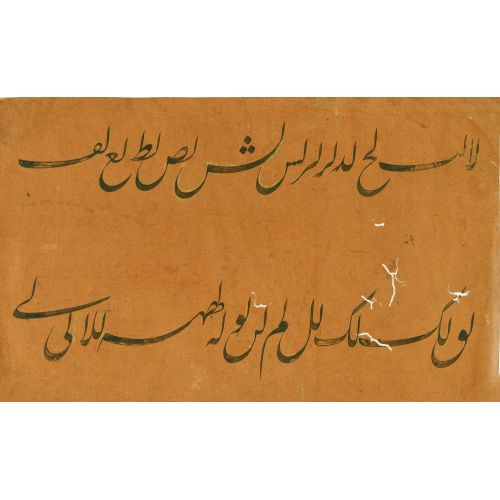 لا لب لح لد لر لس لش لص لط لع لف
لق لک لک لل لم لن لو له للا لی لے